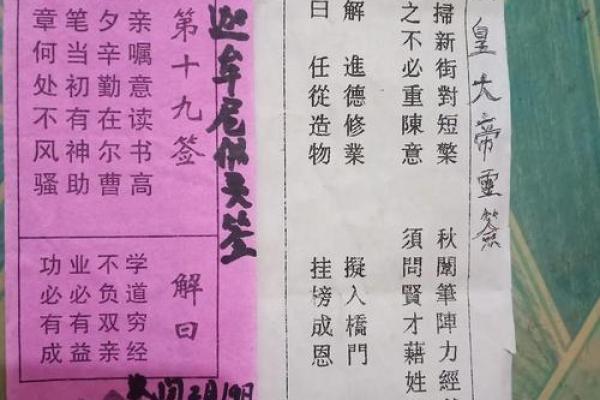 皇大帝靈簽
掃新街對短檠 秋闈筆陣力經
之不必重陳意 須問賢才藉姓
解 進德修業 擬入橋門
曰 任從造物 挂榜成恩
迦牟尼佛灵签
第十九签
亲嘱意读书高
夕辛勤在尔曹
笔当初有神助
章何处不风骚
解曰
学道穷经
不负双亲
业必有益
功必有成
2月19日